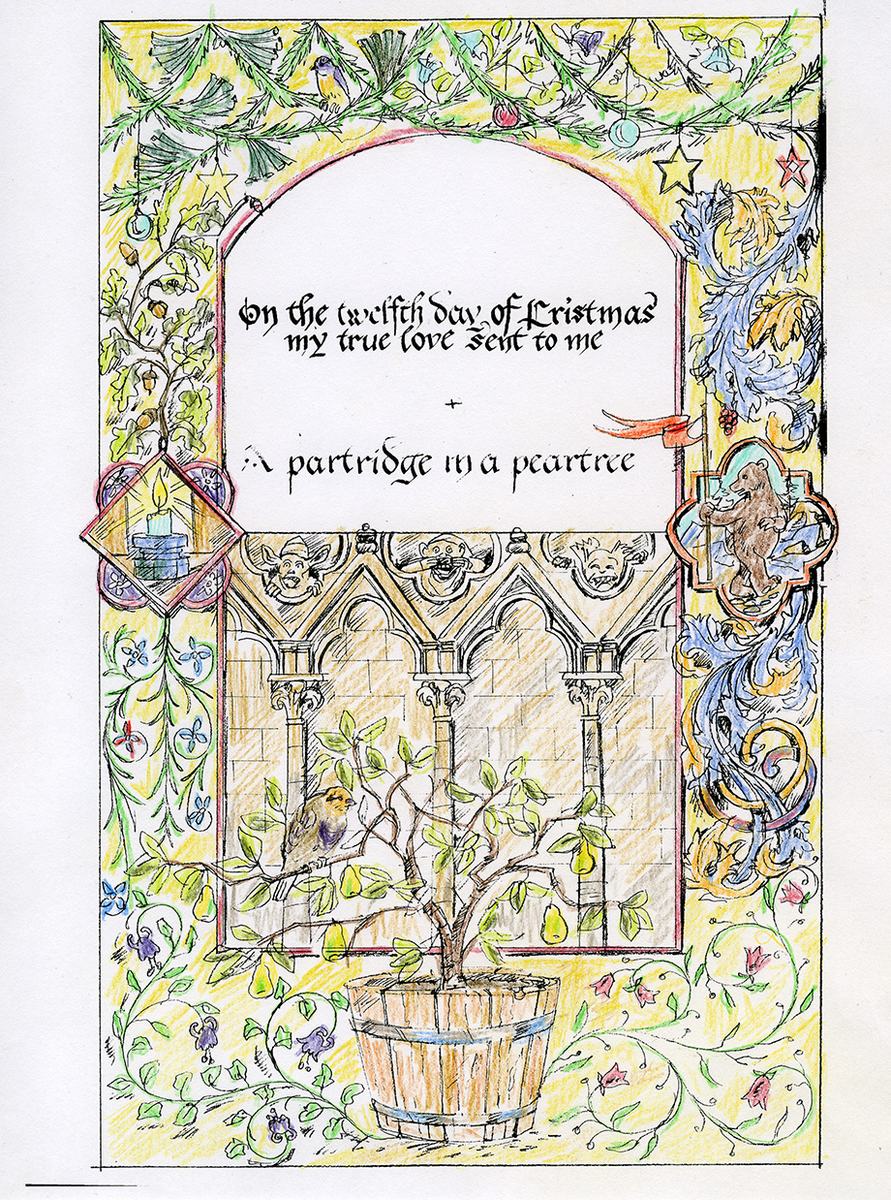 On the twelfth day of Cristmas
my true love sent to me
+
A partridge in a peartree